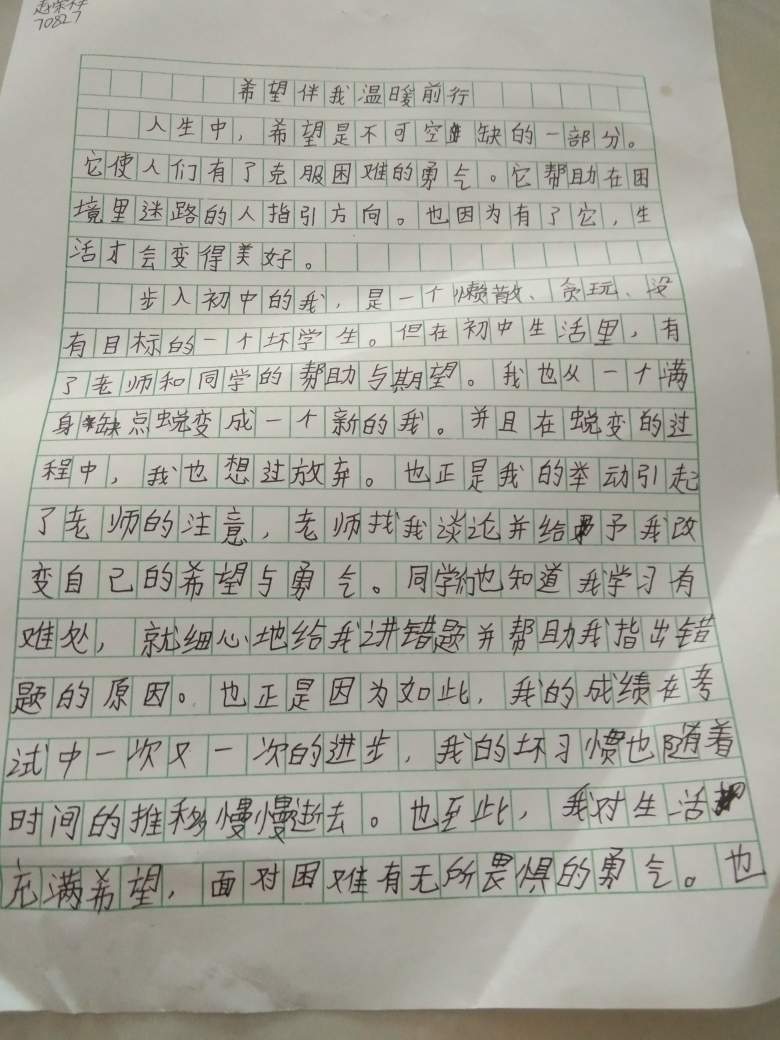 70827
希望伴我温暖前行
人生中，希望是不可空缺的一部分。
它使人们有了克服困难的勇气。它帮助在困
境里迷路的人指引方向。也因为有了它，生
活才会变得美好。
步入初中的我，是一个懒散、贪玩、没
有目标的一个坏学生。但在初中生活里，有
了老师和同学的帮助与期望。我也从一个满
身缺点蜕变成一个新的我。并且在蜕变的过
程中，我也想过放弃。也正是我的举动引起
了老师的注意，老师找我谈论并给予我改
变自己的希望与勇气。同学们也知道我学习有
难处，就细心地给我讲错题并帮助我指出错
题的原因。也正是因为如此，我的成绩在考
试中一次又一次的进步，我的坏习惯也随着
时间的推移慢慢逝去。也至此，我对生活
充满希望，面对困难有无所畏惧的勇气。也